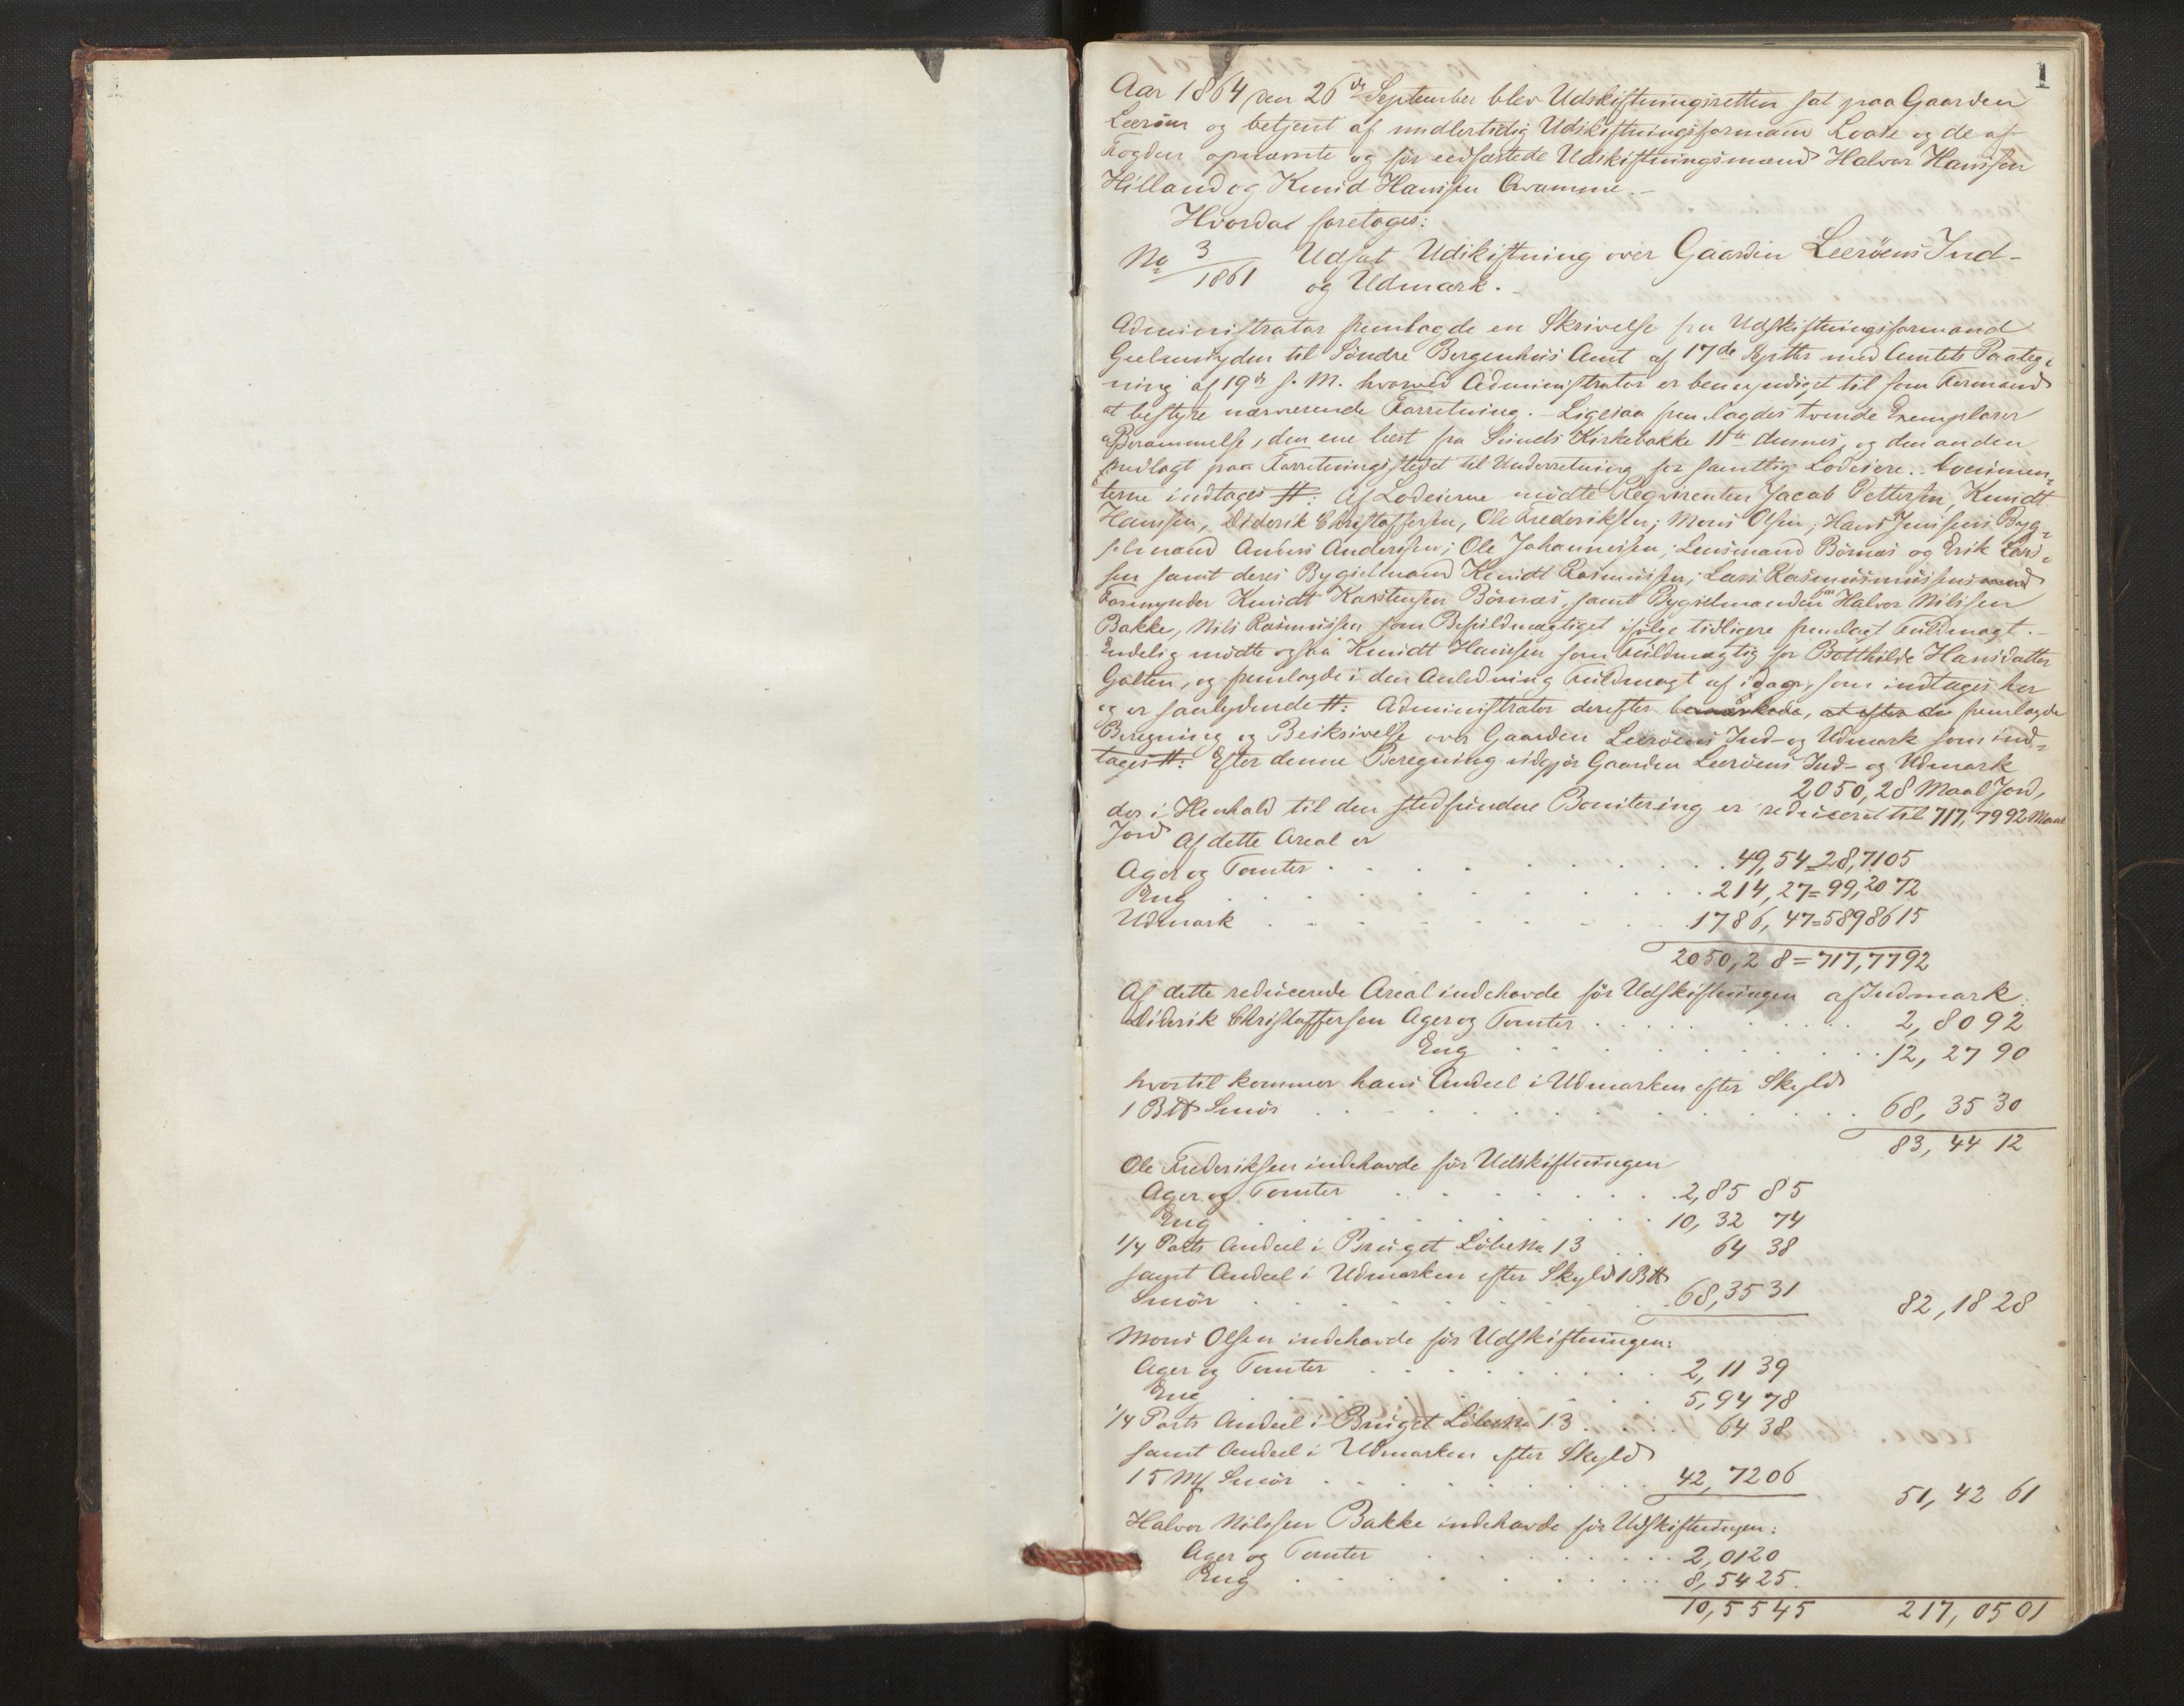 1
Aar 1864 den 26de September blev Udskiftningsretten sat paa Gaarden
Leeröen og betjent af midlertidig Udskiftningsformand Loase og de af
Fogden opnævnte og før edfæstede Udskiftningsmænd Halvor Hanssen
Hilland og Knud Hanssen Qvamme.-
Hvorda foretoges:
No 3/1861 Udsat Udskiftning over Gaarden Leeröens Ind-
og Udmark.
Administrator fremlagde en Skrivelse fra Udskiftningsformand
Geelmuyden til Söndre Bergenhus Amt af 17de Septbr med Amtets Paateg-
ning af 19de s. M. hvorved Administrator er bemyndiget til som Formand
at bestyre nærværende Forretning.- Ligesaa fremlagdes tvende Exemplarer
af Berammelse, den ene læst fra Sunds Kirkebakke 11te dennes, og den anden
nedlagt paa Forretningsstedet til Underretning for samtlige Lodeiere.- Documen-
terne indtages #: Af Lodeierne mödte Reqvirenten Jacob Pettersen, Knudt
Hanssen, Diderik Christoffersen, Ole Frederiksen; Mons Olsen; Hans Jenssens Byg-
selmand Anders Anderssen; Ole Johannessen; Lensmand Börnæs og Erik Lars-
sen samt deres Bygselmand Knudt Rasmussen; Lars Rasmusmussens
Formynder Knudt Karstensen Börnæs, samt Bygselmanden Halvor Nilssen
Bakke, Nils Rasmussen som Befuldmægtiget ifölge tidligere fremlagt Fuldmagt.-
Endelig mödte ogsaa Knudt Hanssen som Fuldmægtig for Botthilde Hansdatter
Golten, og fremlagde i den Anledning Fuldmagt af idag, som indtages her
og er saalydende #: Administrator derefter bemærkede, at efter de fremlagde
Beregning og Beskrivelse over Gaarden Leeröens Ind- og Udmark som ind-
tages #: Efter denne Beregning udgjör Gaarden Leeröens Ind- og Udmark
2050,28 Maal Jord,
der i Henhold til den stedfundne Bonitering er reduceret til 717,7992 Maal
Jord Af dette Areal er
Ager og Tomter . . . 49,54=28,7105
Eng . . . 214,27=99,2072
Udmark . . . 1786,47=5898615
2050,28=717,7792
Af dette reducerede Areal indehavde för Udskiftningen af Indmark:
Diderik Christoffersen Ager og Tomter . . . 2,8092
Eng . . . 12,2790
hvortil kommer hans Andeel i Udmarken efter Skyld
1 B℔ Smör . . . 68,3530
83,4412
Ole Frederiksen indehavde för Udskiftningen
Ager og Tomter . . . 2,8585
Eng . . . 10,3274
1/4 Parts Andeel i Bruget Löbe No 13 . . . 6438
samt Andeel i Udmarken efter Skyld 1 B℔
Smör . . . 68,3531 82,1828
Mons Olsen indehavde för Udskiftningen:
Ager og Tomter . . . 2,1139
Eng . . . 5,9478
1/4 Parts Andeel i Bruget Löbe No 13 . . . 6438
samt Andeel i Udmarken efter Skyld
15 Mf Smör . . . 42,7206 51,4261
Halvor Nilssen Bakke indehavde för Udskiftningen:
Ager og Tomter . . . 2,0120
Eng . . . 8,5425.
10,5545 217,0501